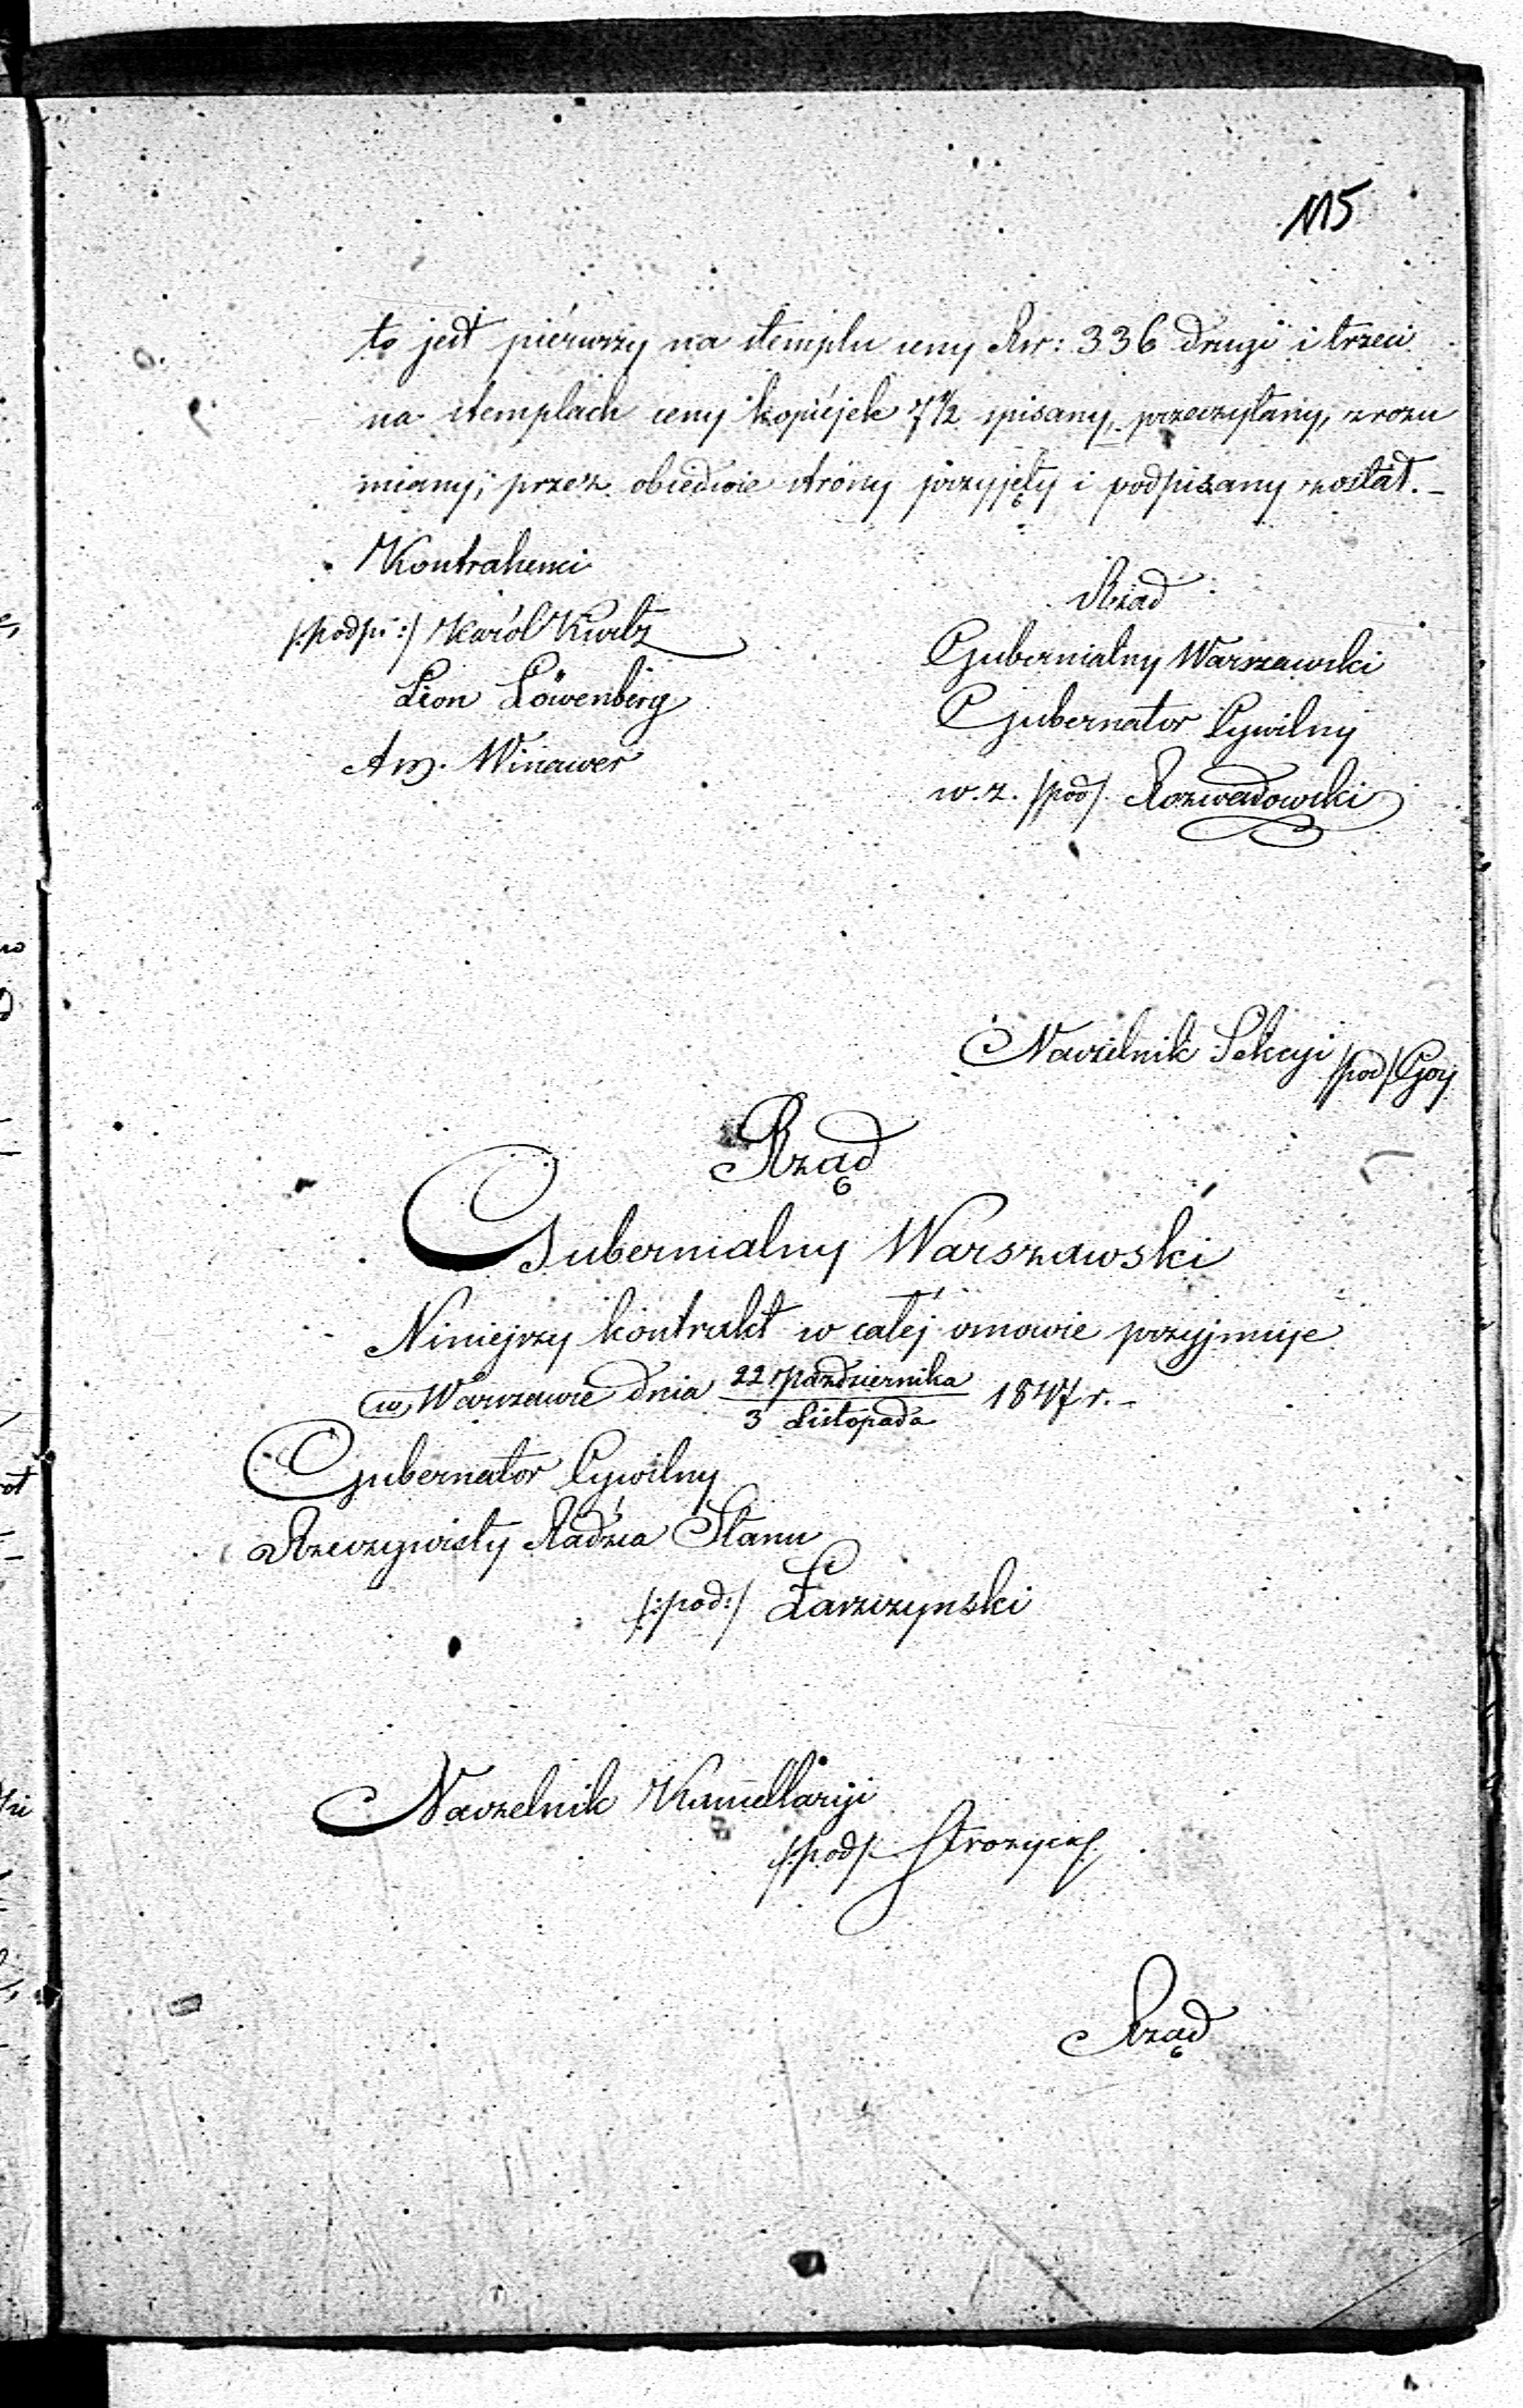 115
to jest piérwszy na stemplu ceny Rsr: 336 drugi i trzeci
na stemplach ceny kopiéjek 7½ spisany, przeczytany, zrozu
miany, przez obiedwie stróny przyjęty i podpisany został.-
Kontrahenci
/:podpi:/ Karól Kurtz
Leon Löwenberg
Am. Winawer
Rząd
Gubernialny Warszawski
Gubernator Cywilny
w. z. /pod/. Rozwadowski
Naczelnik Sekcyi /pod/ Goy
Rząd
Gubernialny Warszawski
Niniejszy kontrakt w całéj osnowie przyjmuje
w Warszawie dnia 22 Października / 3 Listopada 1847 r.-
Gubernator Cywilny
Rzeczywisty Radzca Stanu
/:pod:/ Łaszczynski
Naczelnik Kancellaryi
/:pod/:
Rząd